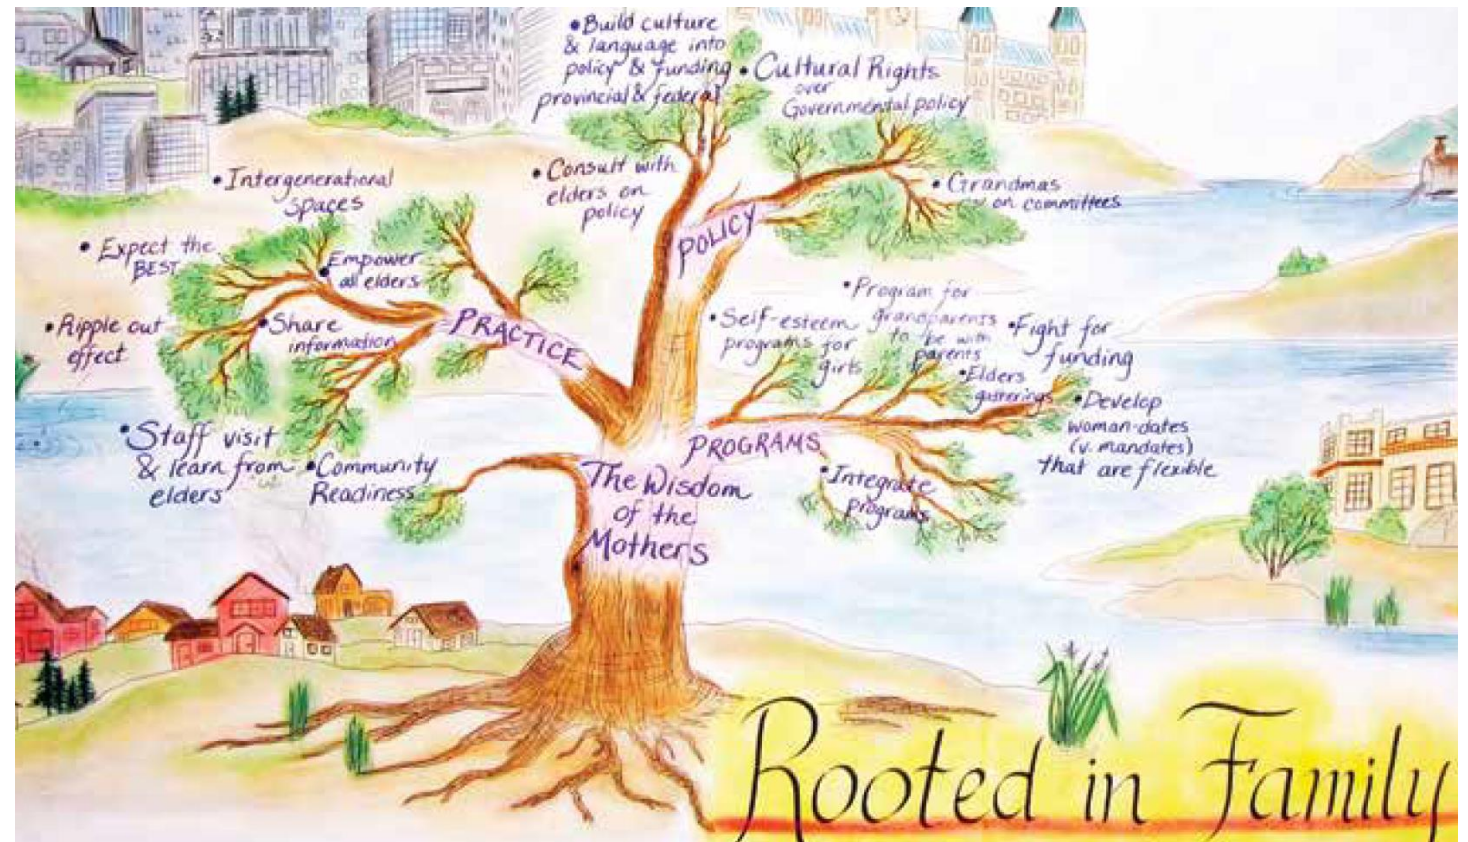 •Build culture
& language into
policy & funding
provincial & federal
•Cultural Rights
over
Governmental policy
•Consult with
elders on
policy
•Grandmas
on committees
POLICY
•Intergenerational
spaces
•Expect the
BEST
•Empower
all elders
•Ripple out
effect
•Share
information
PRACTICE
•Staff visit
& learn from
elders
•Community
Readiness
•Self-esteem
programs for
girls
•Program for
grandparents
to be with
parents
•Fight for
funding
•Elders
gatherings
•Develop
woman-dates
(v. mandates)
that are flexible
PROGRAMS
•Integrate
programs
The Wisdom
of the
Mothers
Rooted in Family